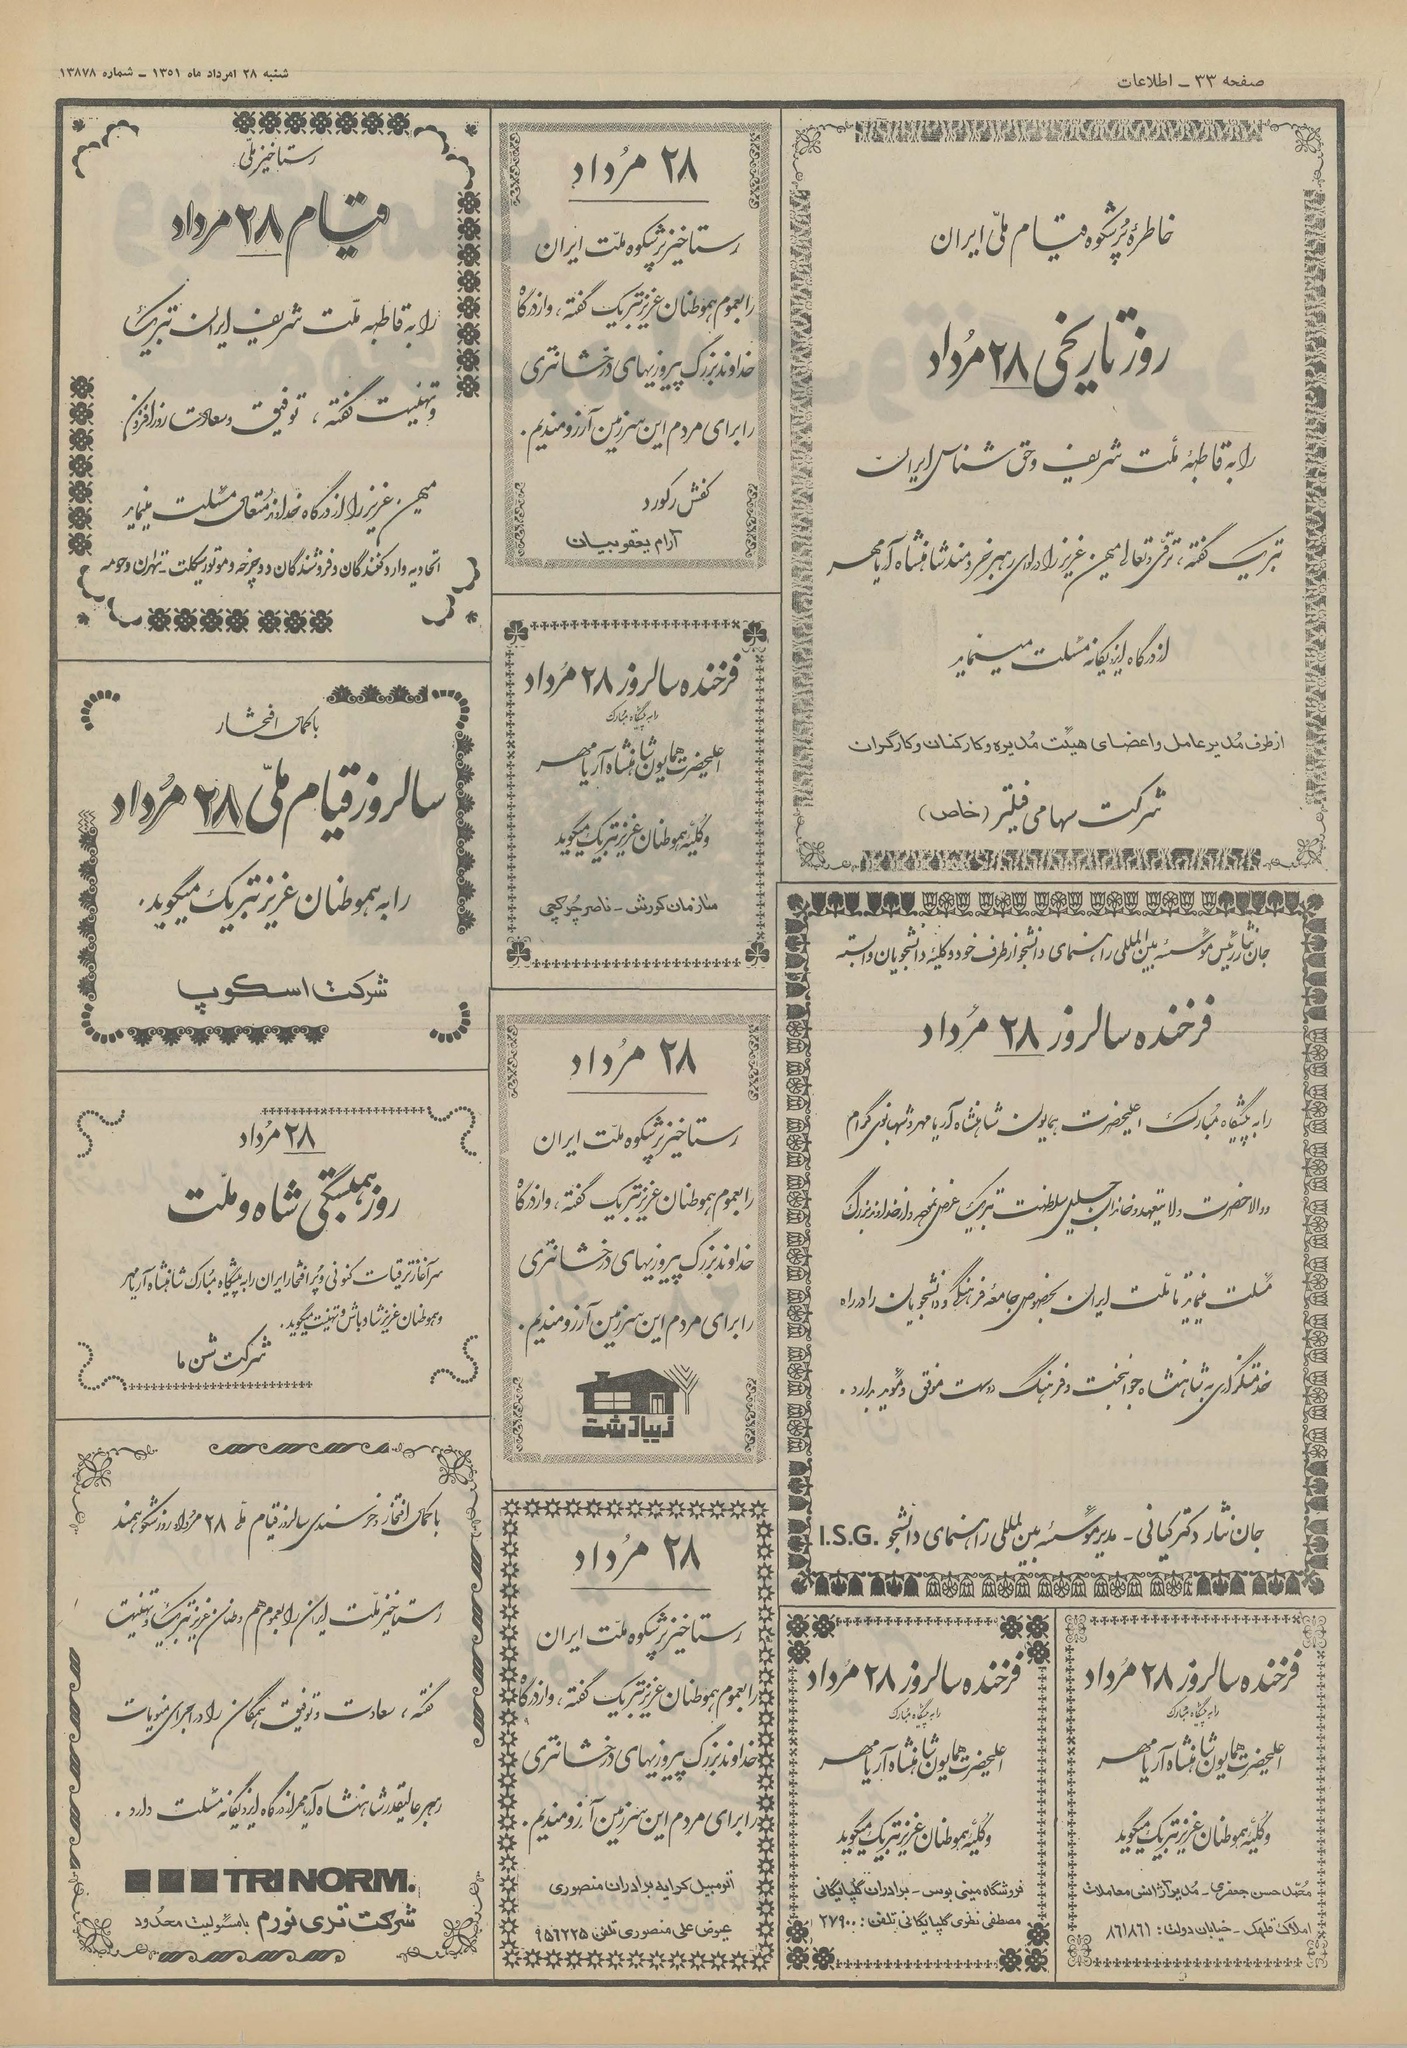 صفحه ۳۳ – اطلاعات
شنبه ۲۸ امرداد ماه ۱۳۵۱ – شماره ۱۳۸۷۸
خاطرهٔ پرشکوه قیام ملی ایران
روز تاریخی ۲۸ مُرداد
را به قاطبهٔ ملت شریف و حق شناس ایران
تبریک گفته، ترقی و تعالی میهن عزیز را در لوای رهبر خردمند شاهنشاه آریامهر
از درگاه ایزد یگانه مسئلت مینماید
از طرف مُدیر عامل و اعضای هیئت مدیره و کارکنان و کارگران
شرکت سهامی فیلتر (خاص)
جان نثار رئیس مؤسسه بین المللی راهنمای دانشجو از طرف خود و کلیهٔ دانشجویان وابسته
فرخنده سالروز ۲۸ مُرداد
را به پیشگاه مُبارک اعلیحضرت همایون شاهنشاه آریامهر و شهبانوی گرام
و والاحضرت ولایتعهد و خاندان جلیل سلطنت تبریک عرض نموده و از خداوند بزرگ
مسئلت مینماید تا ملت ایران بخصوص جامعهٔ فرهنگی و دانشجویان را در راه
خدمتگزاری به شاهنشاه جوانبخت و فرهنگ دوست موفق و مؤید بدارد.
جان نثار دکتر کیانی – مدیر مؤسسه بین المللی راهنمای دانشجو I.S.G.
فرخنده سالروز ۲۸ مُرداد
را به پیشگاه مبارک
اعلیحضرت همایون شاهنشاه آریامهر
و کلیهٔ هموطنان عزیز تبریک میگوید
محمّد حسن جعفری – مُدیر آژانس معاملات
املاک قلهک – خیابان دولت: ۸۶۱۸۶۱
فرخنده سالروز ۲۸ مُرداد
را به پیشگاه مبارک
اعلیحضرت همایون شاهنشاه آریامهر
و کلیهٔ هموطنان عزیز تبریک میگوید
فروشگاه مینی بوس – برادران گلپایگانی
مصطفی نفری گلپایگانی تلفن: ۲۷۹۰۰
۲۸ مُرداد
رستاخیز پرشکوه ملت ایران
را بعموم هموطنان عزیز تبریک گفته، و از درگاه
خداوند بزرگ پیروزیهای درخشانتری
را برای مردم این سرزمین آرزومندیم.
کفش رکورد
آرام یعقوبیان
فرخنده سالروز ۲۸ مُرداد
را به پیشگاه مبارک
اعلیحضرت همایون شاهنشاه آریامهر
و کلیهٔ هموطنان عزیز تبریک میگوید
سازمان کورش – ناصر چرکچی
۲۸ مُرداد
رستاخیز پرشکوه ملت ایران
را بعموم هموطنان عزیز تبریک گفته، و از درگاه
خداوند بزرگ پیروزیهای درخشانتری
را برای مردم این سرزمین آرزومندیم.
زیبادشت
۲۸ مُرداد
رستاخیز پرشکوه ملت ایران
را بعموم هموطنان عزیز تبریک گفته، و از درگاه
خداوند بزرگ پیروزیهای درخشانتری
را برای مردم این سرزمین آرزومندیم.
اتومبیل کرایه برادران منصوری
عیوض علی منصوری تلفن ۹۵۶۲۲۵
رستاخیز ملّی
قیام ۲۸ مرداد
را به قاطبهٔ ملّت شریف ایران تبریک
و تهنیت گفته، توفیق و سعادت روزافزون
میهن عزیز را از درگاه خداوند مُتعال مسئلت مینماید
اتحادیه وارد کنندگان و فروشندگان دوچرخه و موتورسیکلت – تهران و حومه
با کمال افتخار
سالروز قیام ملّی ۲۸ مُرداد
را به هموطنان عزیز تبریک میگوید.
شرکت اسکوپ
۲۸ مُرداد
روز همبستگی شاه و ملّت
سرآغاز ترقیات کنونی و پرافتخار ایران را به پیشگاه مُبارک شاهنشاه آریامهر
و هموطنان عزیز شادباش و تهنیت میگوید.
شرکت شن ما
با کمال افتخار و خرسندی سالروز قیام ملی ۲۸ مرداد روز شکوهمند
رستاخیز ملّت ایران را بعموم هم وطنان عزیز تبریک و تهنیت
گفته، سعادت و توفیق همگان را در اجرای منویات
رهبر عالیقدر شاهنشاه آریامهر از درگاه ایزد یگانه مسئلت دارد.
TRI NORM.
شرکت تری نورم با مسئولیت محدود